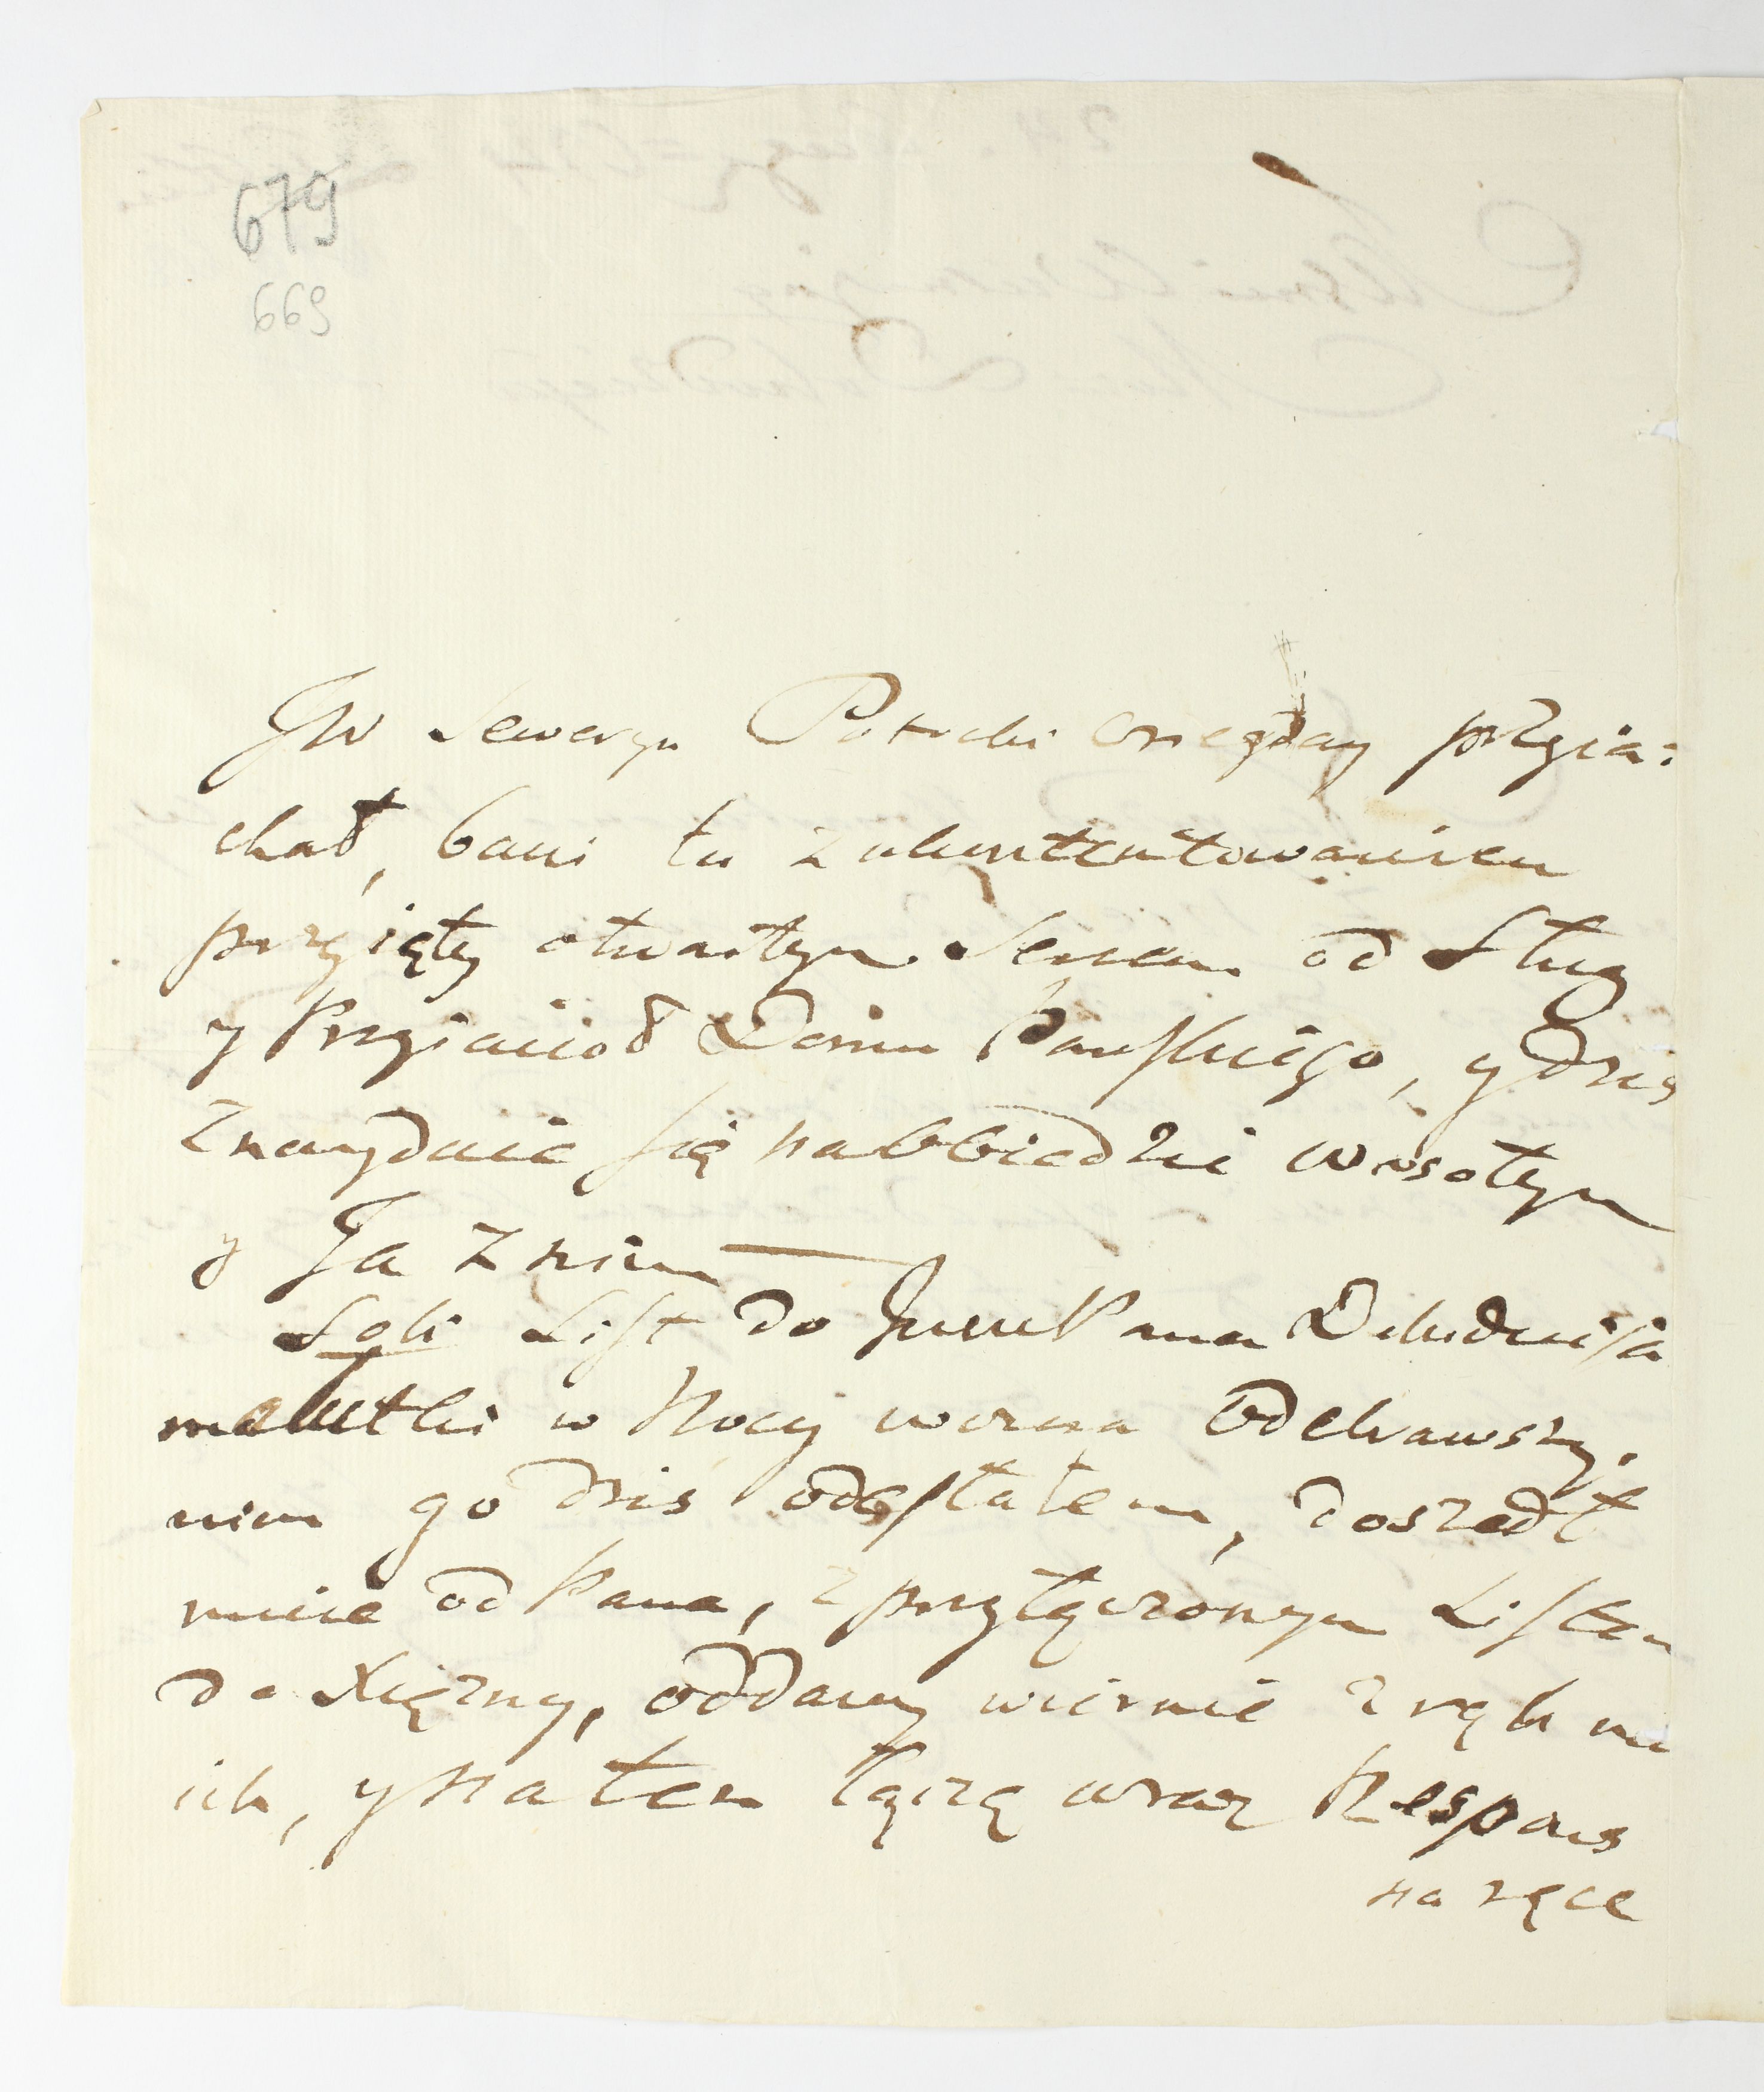 679
669
JW Seweryn Potocki onegday przyia:
chał, bawi tu z ukontentowaniem
przyięty otwartym Sercem od Sług
y Przyiacioł Domu Pańskiego, y dziś
znayduie się na Obiedzie wesołym
y Ja z nim —
List do
w Nocy wczora odebrawszy,
nim go dziś odesłałem, doszedł
mnie od Pana, z przyłączonym Listem
do Xiężny, oddany wiernie z rąk mo
ich, y na ten łączę wraz Respons
na ręce